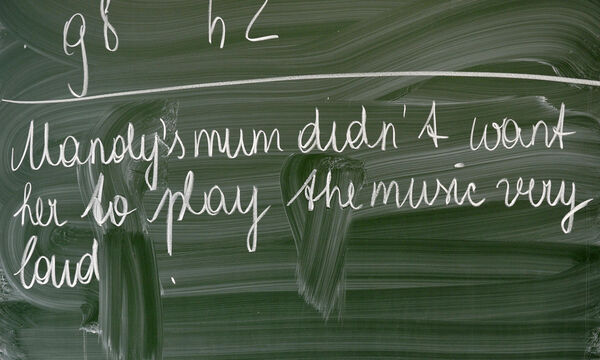 g8 h2
Mandy's mum didn't want
her to play the music very
loud .